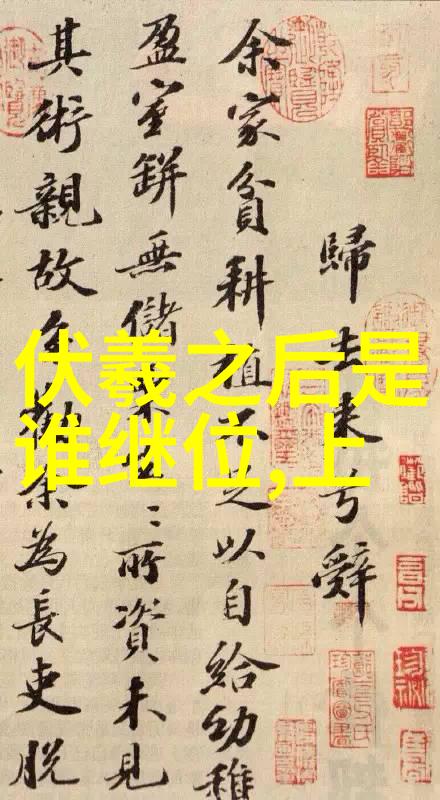 伏羲之后是
谁继位,上
歸去来兮辭
余家貧耕植不足以自給幼稚
盈室缾無儲粟生〻所資未見
其術親故多勸余為長吏脱